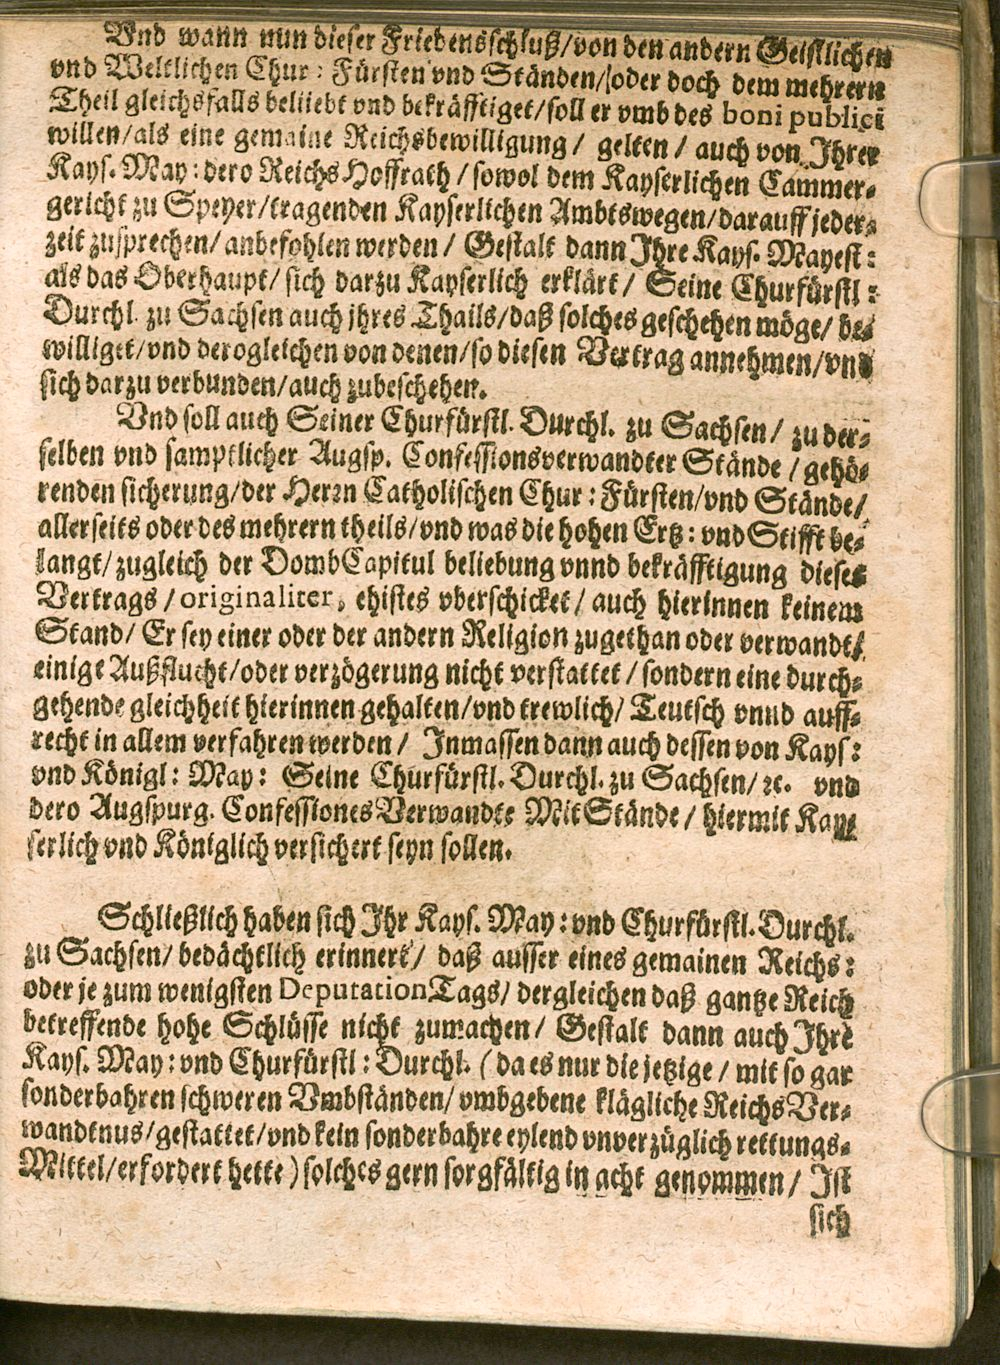 Vnd wann nun dieser Friedensschluß/von den andern Geistlichen
vnd Weltlichen Chur: Fürsten vnd Ständen/oder doch dem mehrern
Theil gleichsfalls beliebt vnd bekräfftiget/soll er vmb des boni publici
willen/als eine gemaine Reichsbewilligung/ gelten/ auch von Ihrer
Kays. May: dero Reichs Hoffrath/sowol dem Kayserlichen Cammer-
gericht zu Speyer/tragenden Kayserlichen Ambtswegen/darauff jeder-
zeit zusprechen/anbefohlen werden/ Gestalt dann Ihre Kays. Mayest:
als das Oberhaupt/sich darzu Kayserlich erklärt/ Seine Churfürstl:
Durchl. zu Sachsen auch jhres Thails/daß solches geschehen möge/ be-
williget/vnd derogleichen von denen/so diesen Vertrag annehmen/vnd
sich darzu verbunden/auch zubeschehen.
Vnd soll auch Seiner Churfürstl. Durchl. zu Sachsen/ zu der-
selben vnd samptlicher Augsp. Confessionsverwandter Stände/gehö-
renden sicherung/der Herrn Catholischen Chur: Fürsten/vnd Stände/
allerseits oder des mehrern theils/vnd was die hohen Ertz: vnd Stifft be-
langt/zugleich der DombCapitul beliebung vnnd bekräfftigung dieses
Vertrags/originaliter, ehistes vberschicket/auch hierinnen keinem
Stand/ Er sey einer oder der andern Religion zugethan oder verwandt/
einige Außflucht/oder verzögerung nicht verstattet/sondern eine durch-
gehende gleichheit hierinnen gehalten/vnd trewlich/ Teutsch vnnd auff-
recht in allem verfahren werden/ Inmassen dann auch dessen von Kays:
vnd Königl: May: Seine Churfürstl. Durchl. zu Sachsen/ꝛc. vnd
dero Augspurg. Confessiones Verwandte MitStände/hiermit Kay-
serlich vnd Königlich versichert seyn sollen.
Schließlich haben sich Ihr Kays. May: vnd Churfürstl. Durchl.
zu Sachsen/bedächtlich erinnert/ daß ausser eines gemainen Reichs:
oder je zum wenigsten DeputationTags/dergleichen daß gantze Reich
betreffende hohe Schlüsse nicht zumachen/ Gestalt dann auch Ihre
Kays. May: vnd Churfürstl: Durchl. (da es nur die jetzige/mit so gar
sonderbahren schweren Vmbständen/vmbgebene klägliche Reichs Ver-
wandtnus/gestattet/vnd kein sonderbahre eylend vnverzüglich rettungs-
Mittel/erfordert hette) solches gern sorgfältig in acht genommen/ Ist
sich